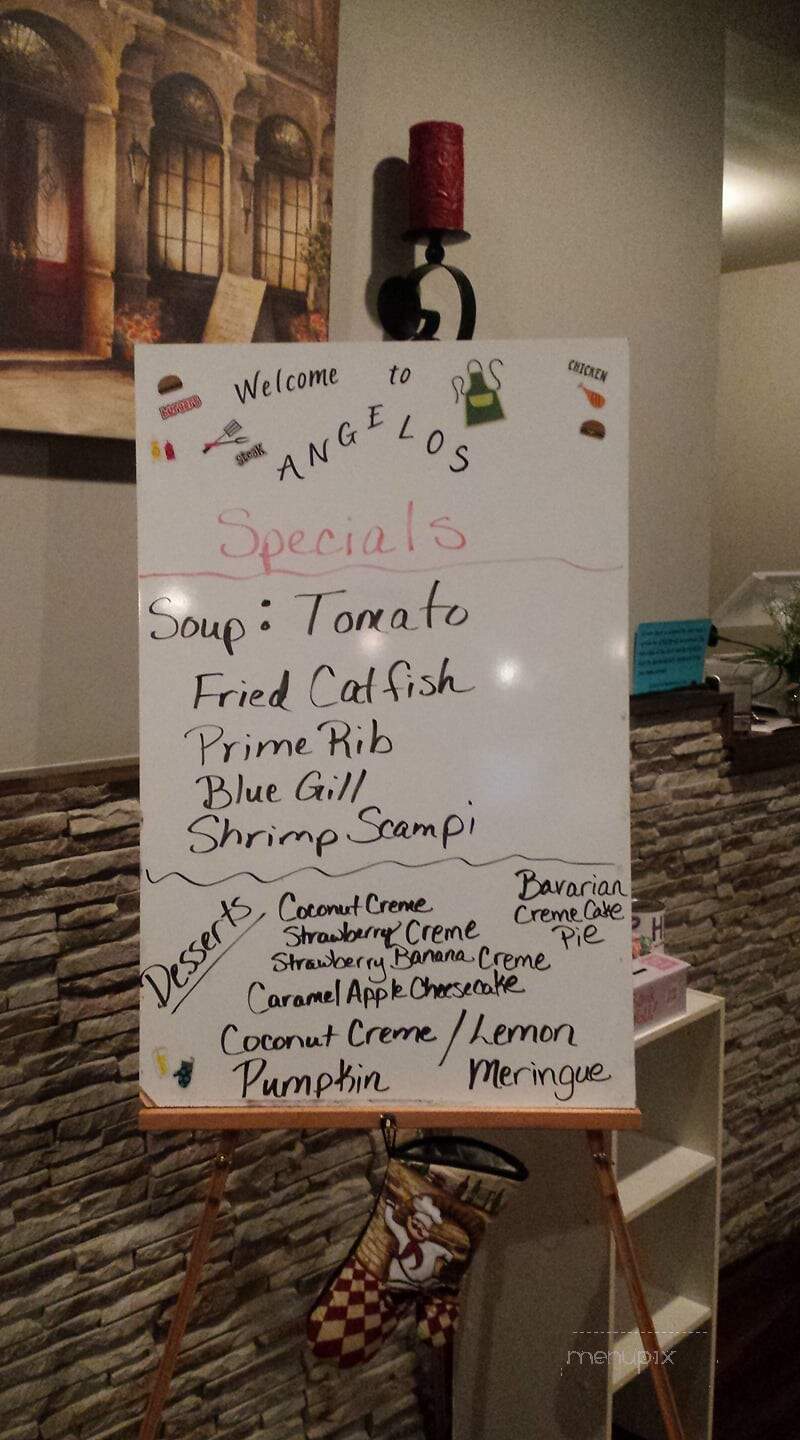 Welcome to
BURGERS
CHICKEN
steak
ANGELOS
Specials
Soup: Tomato
Fried Catfish
Prime Rib
Blue Gill
Shrimp Scampi
Desserts
Coconut Creme
Strawberry Creme
Strawberry Banana Creme
Caramel Apple Cheesecake
Bavarian
Creme Cake
Pie
Coconut Creme / Lemon
Pumpkin Meringue
menupix